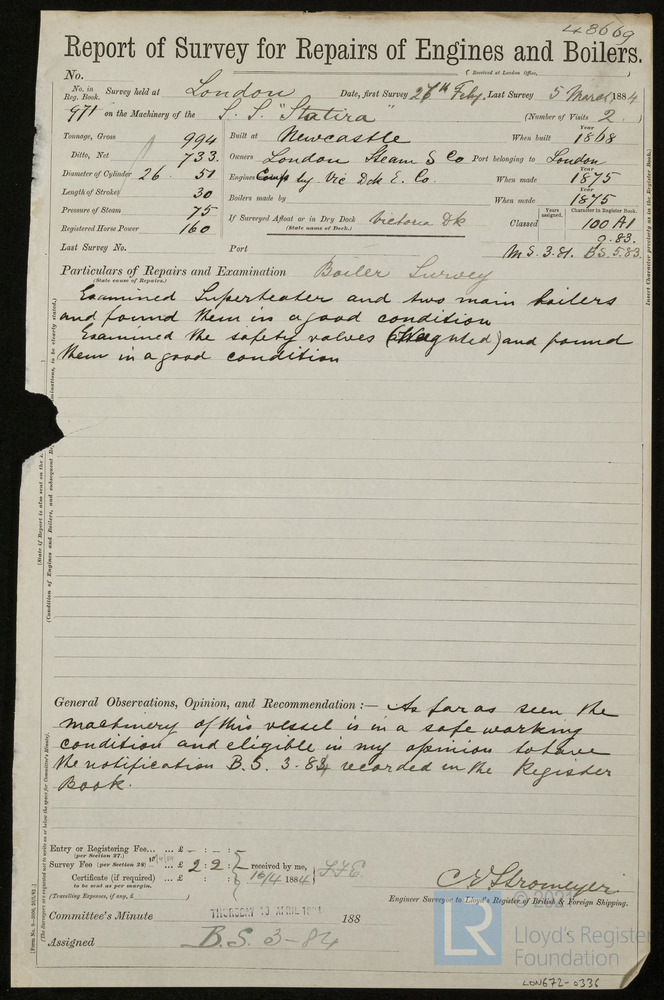 48669
Report of Survey for Repairs of Engines and Boilers.
No. (Received at London Office,
No. in Reg. Book. Survey held at London Date, first Survey 26th Feby. Last Survey 5 March 1884
971 on the Machinery of the S. S. "Statira" (Number of Visits 2)
Tonnage, Gross 994 Built at Newcastle When built Year 1868
Ditto, Net 733. Owners London Steam S Co Port belonging to London
Diameter of Cylinder 26. 51 Engines Comp by Vic Dck E. Co. When made Year 1875
Length of Stroke 30 Boilers made by When made Year 1875
Pressure of Steam 75 If Surveyed Afloat or in Dry Dock Victoria Dk Classed Years assigned. Character in Register Book. 100 A1
(State name of Dock.)
Registered Horse Power 160 9.83.
Last Survey No. Port M S. 3.81. B S. 5.83
Particulars of Repairs and Examination Boiler Survey
(State cause of Repairs.)
Examined Superheater and two main boilers
and found them in a good condition
Examined the safety valves and found
them in a good condition
Insert Character precisely as in the Register Book.
(State if Report is also sent on the
(Condition of Engines and Boilers, and subsequent
General Observations, Opinion, and Recommendation :— As far as seen the
machinery of this vessel is in a safe working
condition and eligible in my opinion to have
the notification B. S. 3.84 recorded in the Register
Book.
Entry or Registering Fee... ... £ - : - : -
(per Section 27.)
Survey Fee (per Section 28) ... £ 2 : 2 : - received by me,
Certificate (if required) ... £ : : 16/4 1884
to be sent as per margin.
(Travelling Expenses, if any, £ )
C E Stromeyer
Engineer Surveyor to Lloyd's Register of British & Foreign Shipping.
Committee's Minute 188
Assigned B.S. 3-84
LR
© 2021
Lloyd's Register
Foundation
LON672-0336